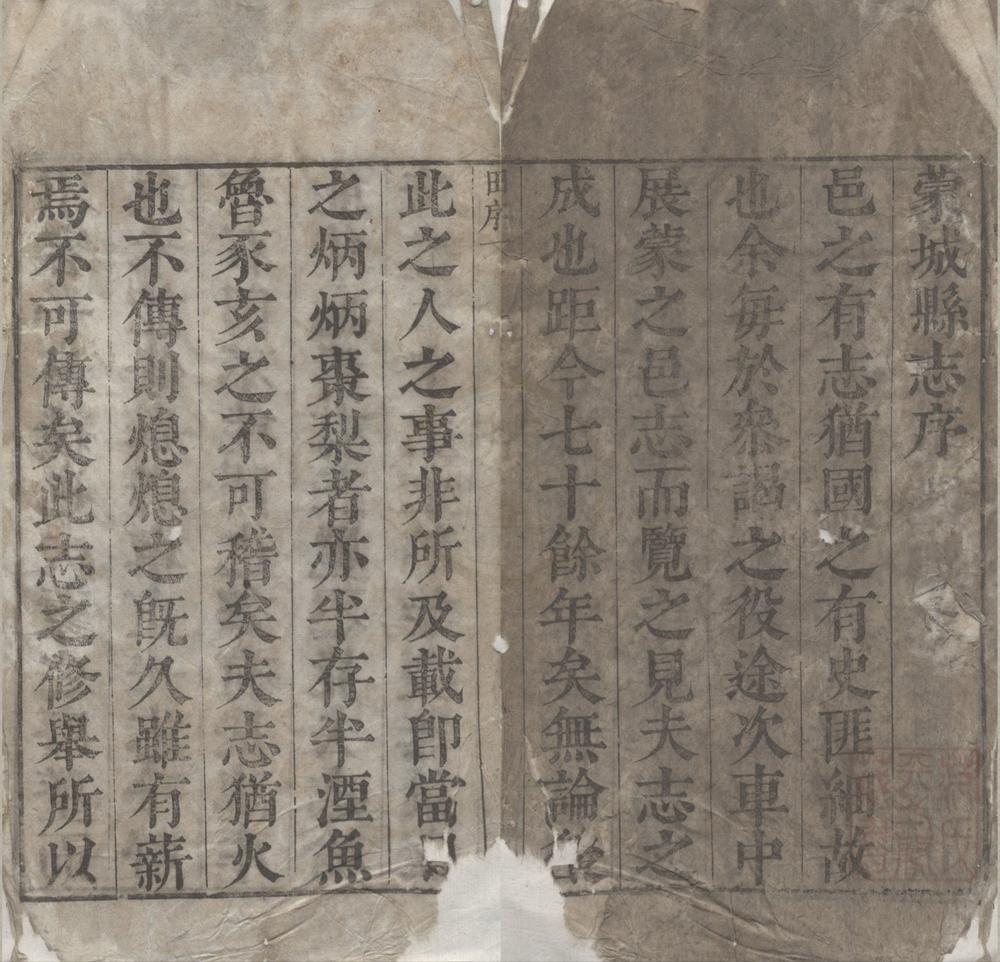 蒙城縣志序
邑之有志猶國之有史匪細故
也余毎於叅謁之役途次車中
展蒙之邑志而覽之見夫志之
成也距今七十餘年矣無論
田序一
此之人之事非所及載卽當
之炳炳棗梨者亦半存半湮魚
魯豕亥之不可稽矣夫志猶火
也不傳則熄熄之旣久雖有薪
焉不可傳矣此志之修舉所以